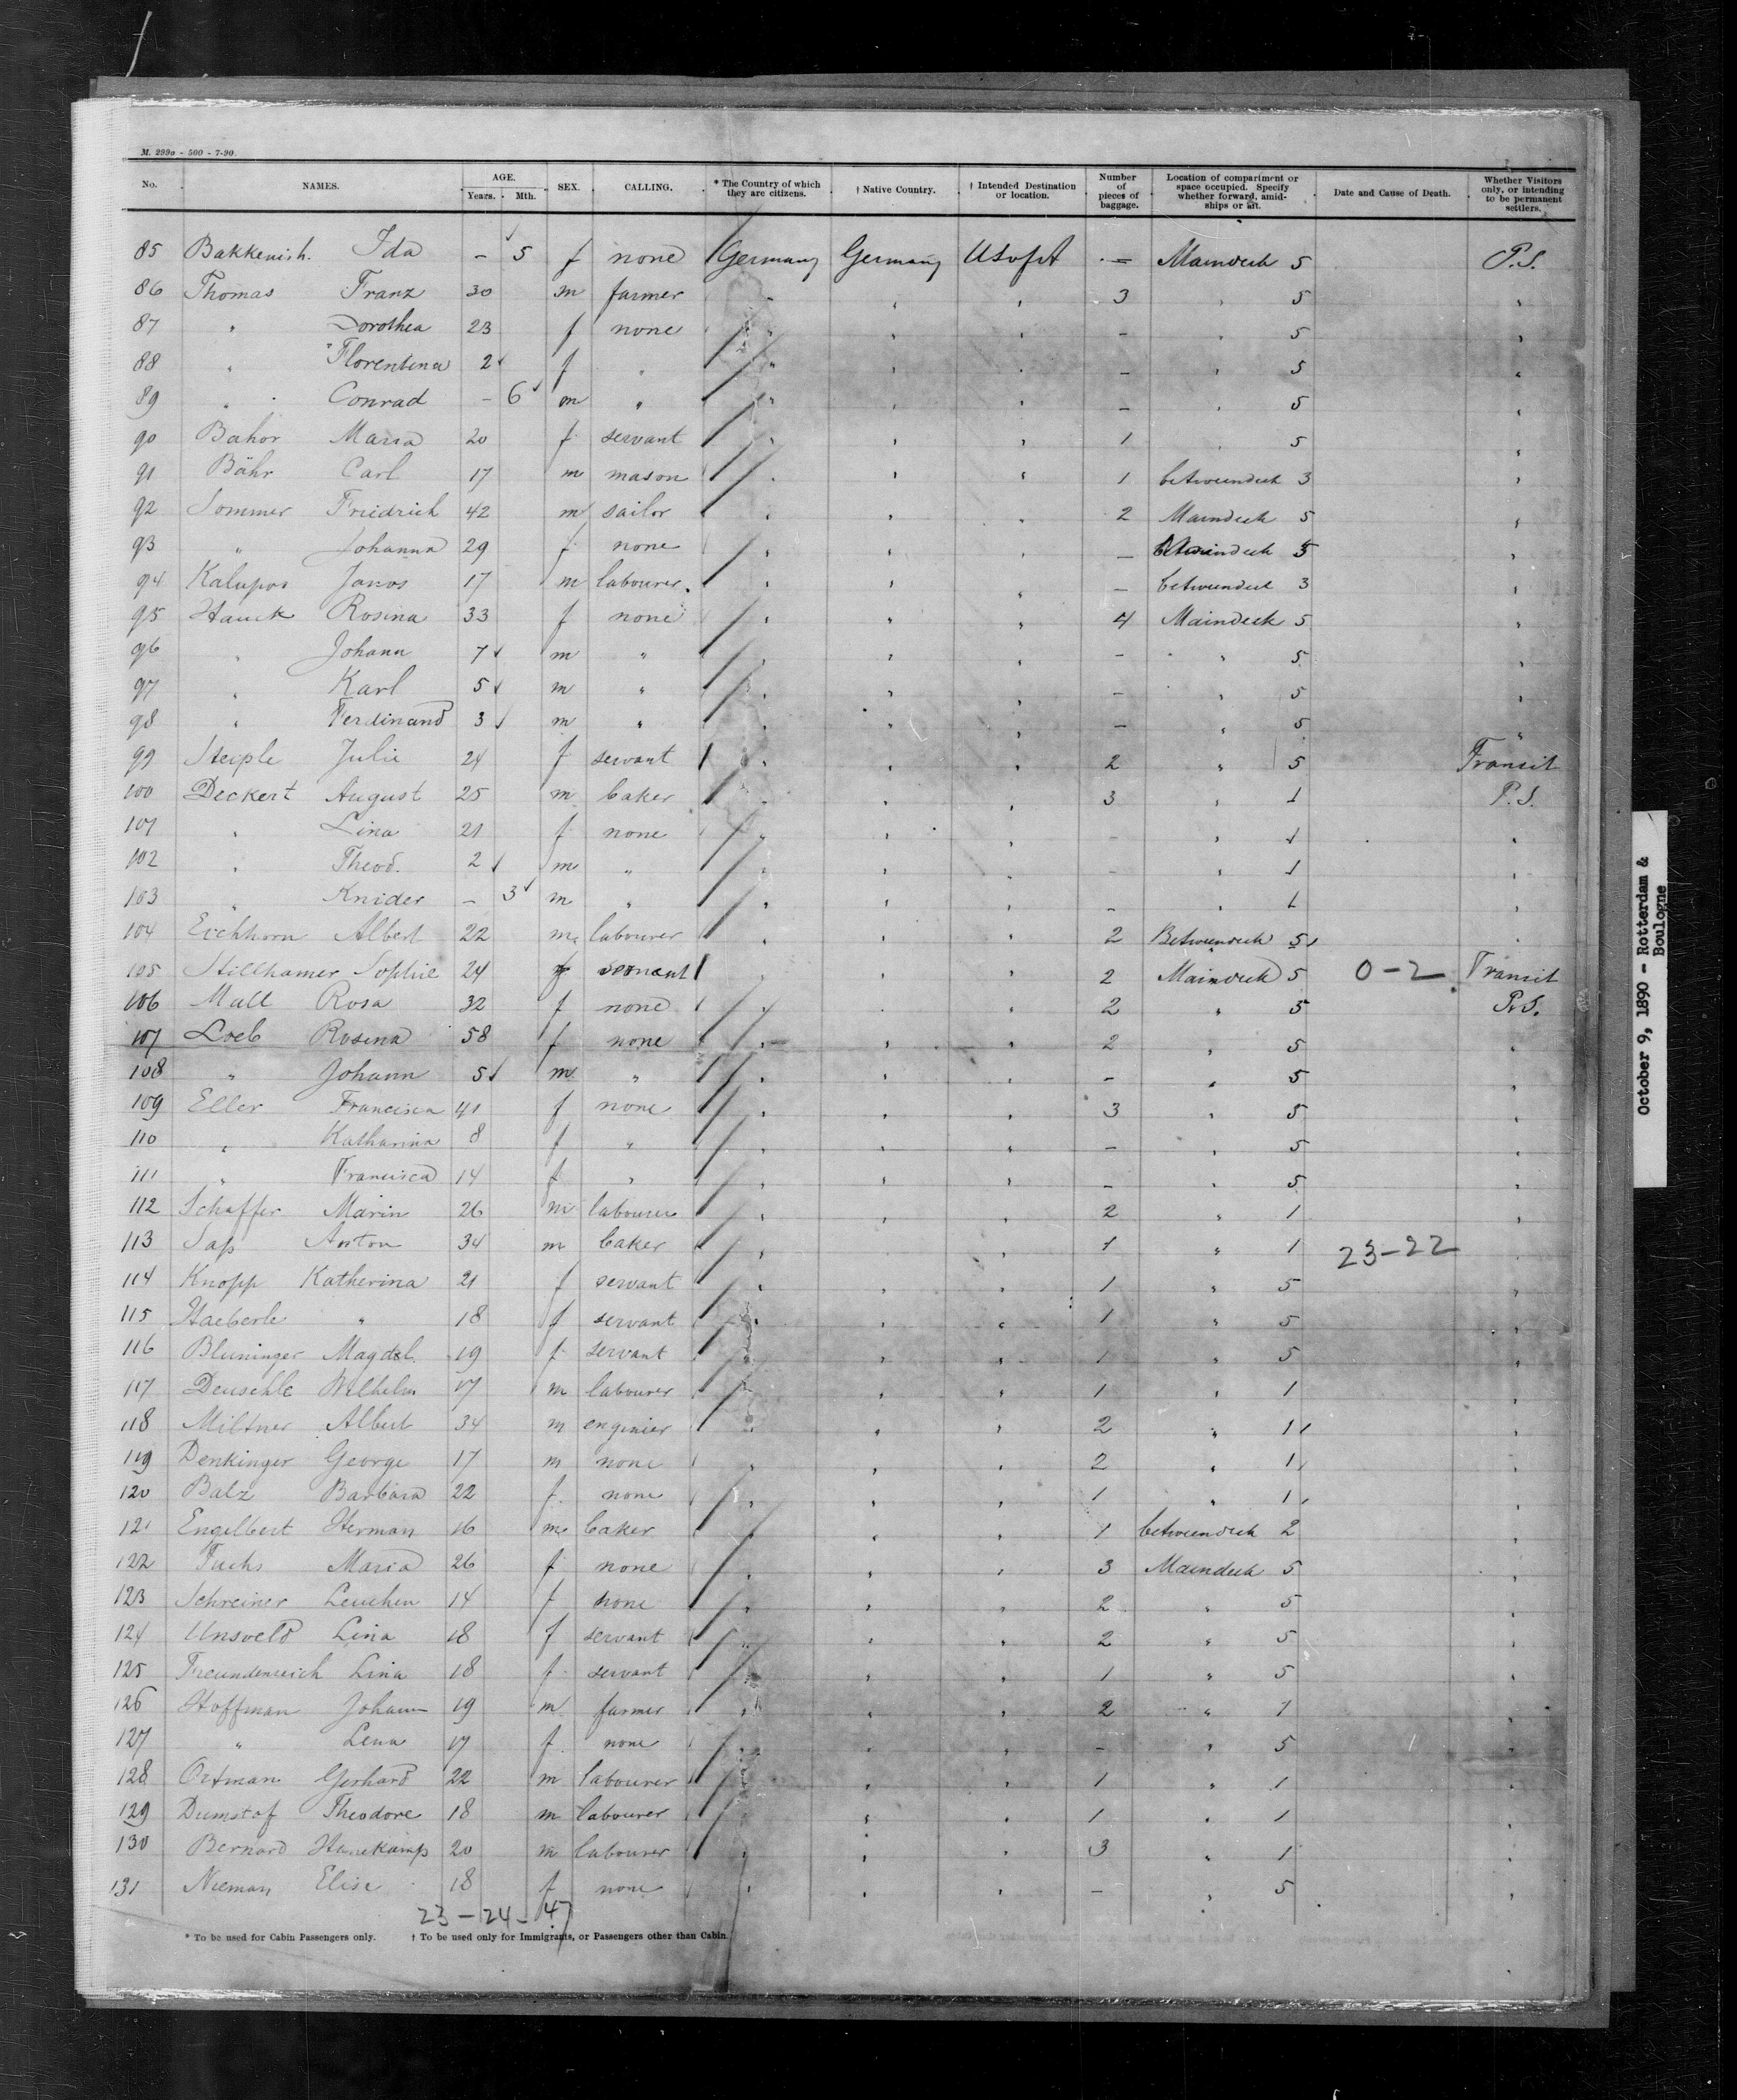 M. 299o - 500 - 7-90.
No. NAMES. AGE. Years. Mth. SEX. CALLING. * The Country of which they are citizens. † Native Country. † Intended Destination or location. Number of pieces of baggage. Location of compartment or space occupied. Specify whether forward, amidships or aft. Date and Cause of Death. Whether Visitors only, or intending to be permanent settlers.
85 Ida – 5 f none Germany Germany US of A – Maindeck 5 P.S.
86 Thomas Franz 30 m farmer " " " 3 " 5 "
87 " Dorothea 23 f none " " " – " 5 "
88 " Florentina 2 f " " " " – " 5 "
89 " Conrad – 6 m " " " " – " 5 "
90 Bahor Maria 20 f servant " " " 1 " 5 "
91 Bähr Carl 17 m mason " " " 1 betweendeck 3 "
92 Sommer Friedrich 42 m sailor " " " 2 Maindeck 5 "
93 " Johanna 29 f none " " " – 5 "
94 Janos 17 m labourer " " " – betweendeck 3 "
95 Hauck Rosina 33 f none " " " 4 Maindeck 5 "
96 " Johann 7 m " " " " – " 5 "
97 " Karl 5 m " " " " – " 5 "
98 " Ferdinand 3 m " " " " – " 5 "
99 Steiple Julie 24 f servant " " " 2 " 5 Transit
100 Deckert August 25 m baker " " " 3 " 1 P.S.
101 " Lina 21 f none " " " – " 1 "
102 " Theod. 2 m " " " " – " 1 "
103 " Knider – 3 m " " " " – " 1 "
104 Eichhorn Albert 22 m labourer " " " 2 Betweendeck 5 "
105 Stillhamer Sophie 24 f servant " " " 2 Maindeck 5 0-2 Transit
106 Mall Rosa 32 f none " " " 2 " 5 P.S.
107 Loeb Rosina 58 f none " " " 2 " 5 "
108 " Johann 5 m " " " " – " 5 "
109 Eller Francisca 41 f none " " " 3 " 5 "
110 " Katharina 8 f " " " " – " 5 "
111 " Francisca 14 f " " " " – " 5 "
112 Schaffer Marin 26 m labourer " " " 2 " 1 "
113 Anton 34 m baker " " " 1 " 1 23-22 "
114 Knopp Katherina 21 f servant " " " 1 " 5 "
115 Haeberle " 18 f servant " " " 1 " 5 "
116 Bluninger Magdal. 19 f servant " " " 1 " 5 "
117 Deuschle Wilhelm 17 m labourer " " " 1 " 1 "
118 Miltner Albert 34 m enginier " " " 2 " 1 "
119 Denkinger George 17 m none " " " 2 " 1 "
120 Balz Barbara 22 f none " " " 1 " 1 "
121 Engelbert Herman 16 m baker " " " 1 betweendeck 2 "
122 Fuchs Maria 26 f none " " " 3 Maindeck 5 "
123 Schreiner 14 f none " " " 2 " 5 "
124 Unsveld Lina 18 f servant " " " 2 " 5 "
125 Freundenreich Lina 18 f servant " " " 1 " 5 "
126 Hoffman Johann 19 m farmer " " " 2 " 1 "
127 " Lena 17 f none " " " – " 5 "
128 Ortman Gerhard 22 m labourer " " " 1 " 1 "
129 Dumstof Theodore 18 m labourer " " " 1 " 1 "
130 Bernard Hanekamp 20 m labourer " " " 3 " 1 "
131 Nieman Elise 18 f none " " " – " 5 "
23-24-47
* To be used for Cabin Passengers only. † To be used only for Immigrants, or Passengers other than Cabin.
October 9, 1890 - Rotterdam &
Boulogne